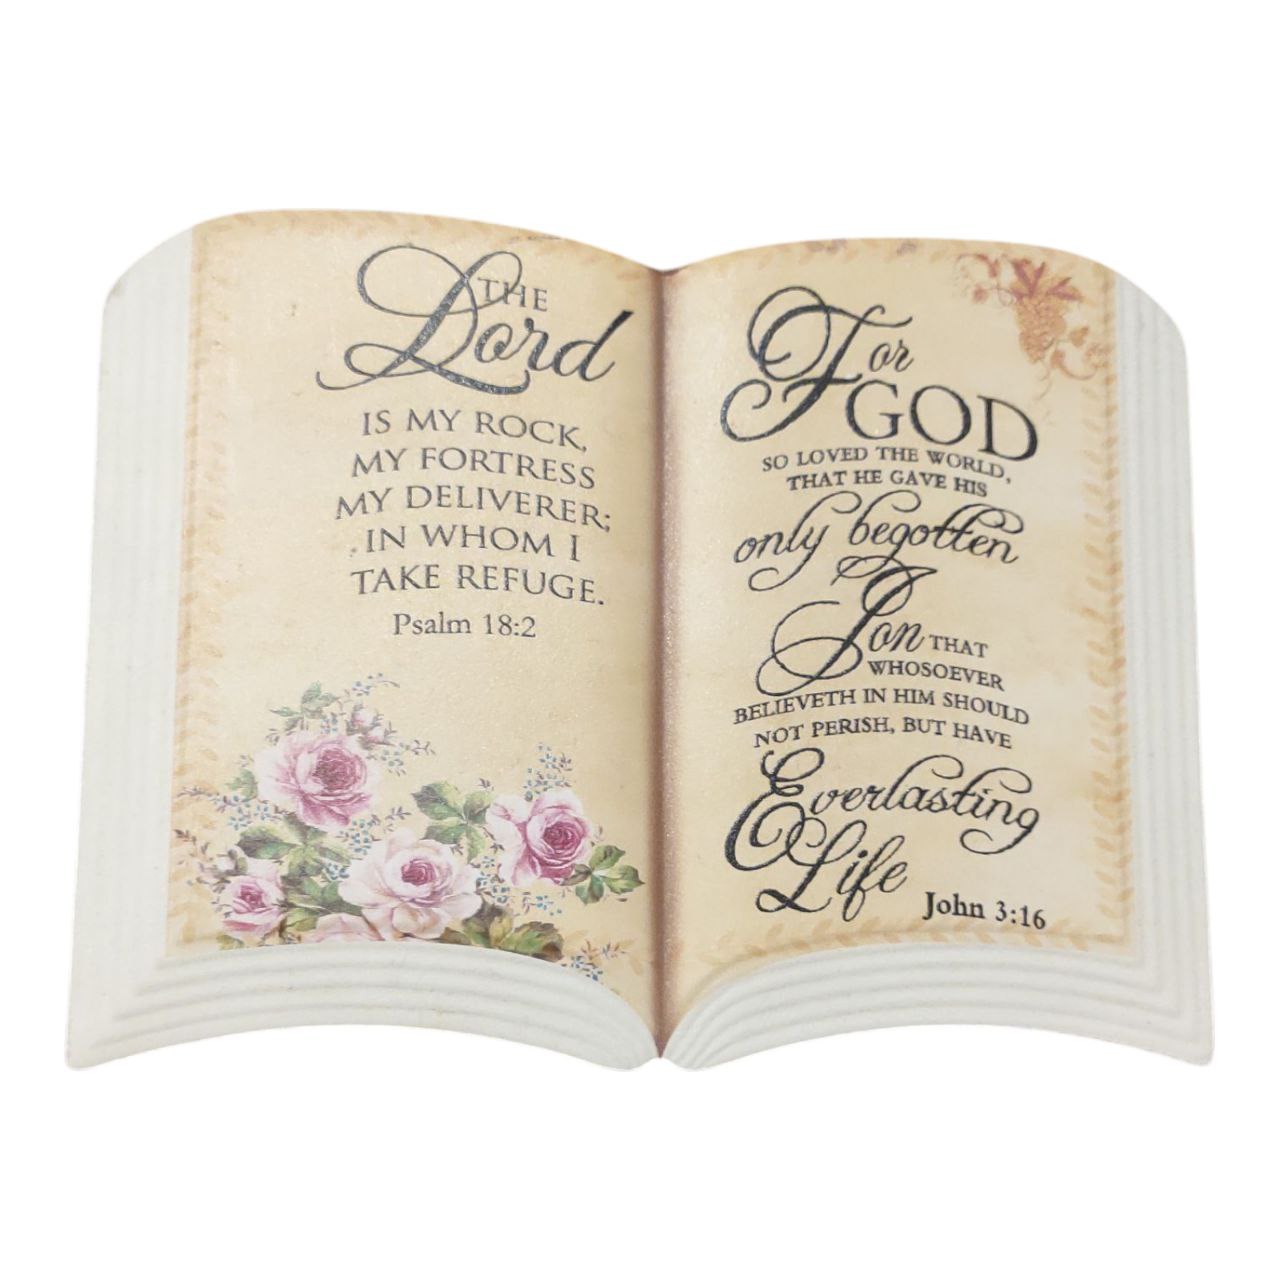 THE
Lord
IS MY ROCK,
MY FORTRESS
MY DELIVERER;
IN WHOM I
TAKE REFUGE.
Psalm 18:2
For
GOD
SO LOVED THE WORLD,
THAT HE GAVE HIS
only begotten
Son THAT
WHOSOEVER
BELIEVETH IN HIM SHOULD
NOT PERISH, BUT HAVE
Everlasting
Life
John 3:16